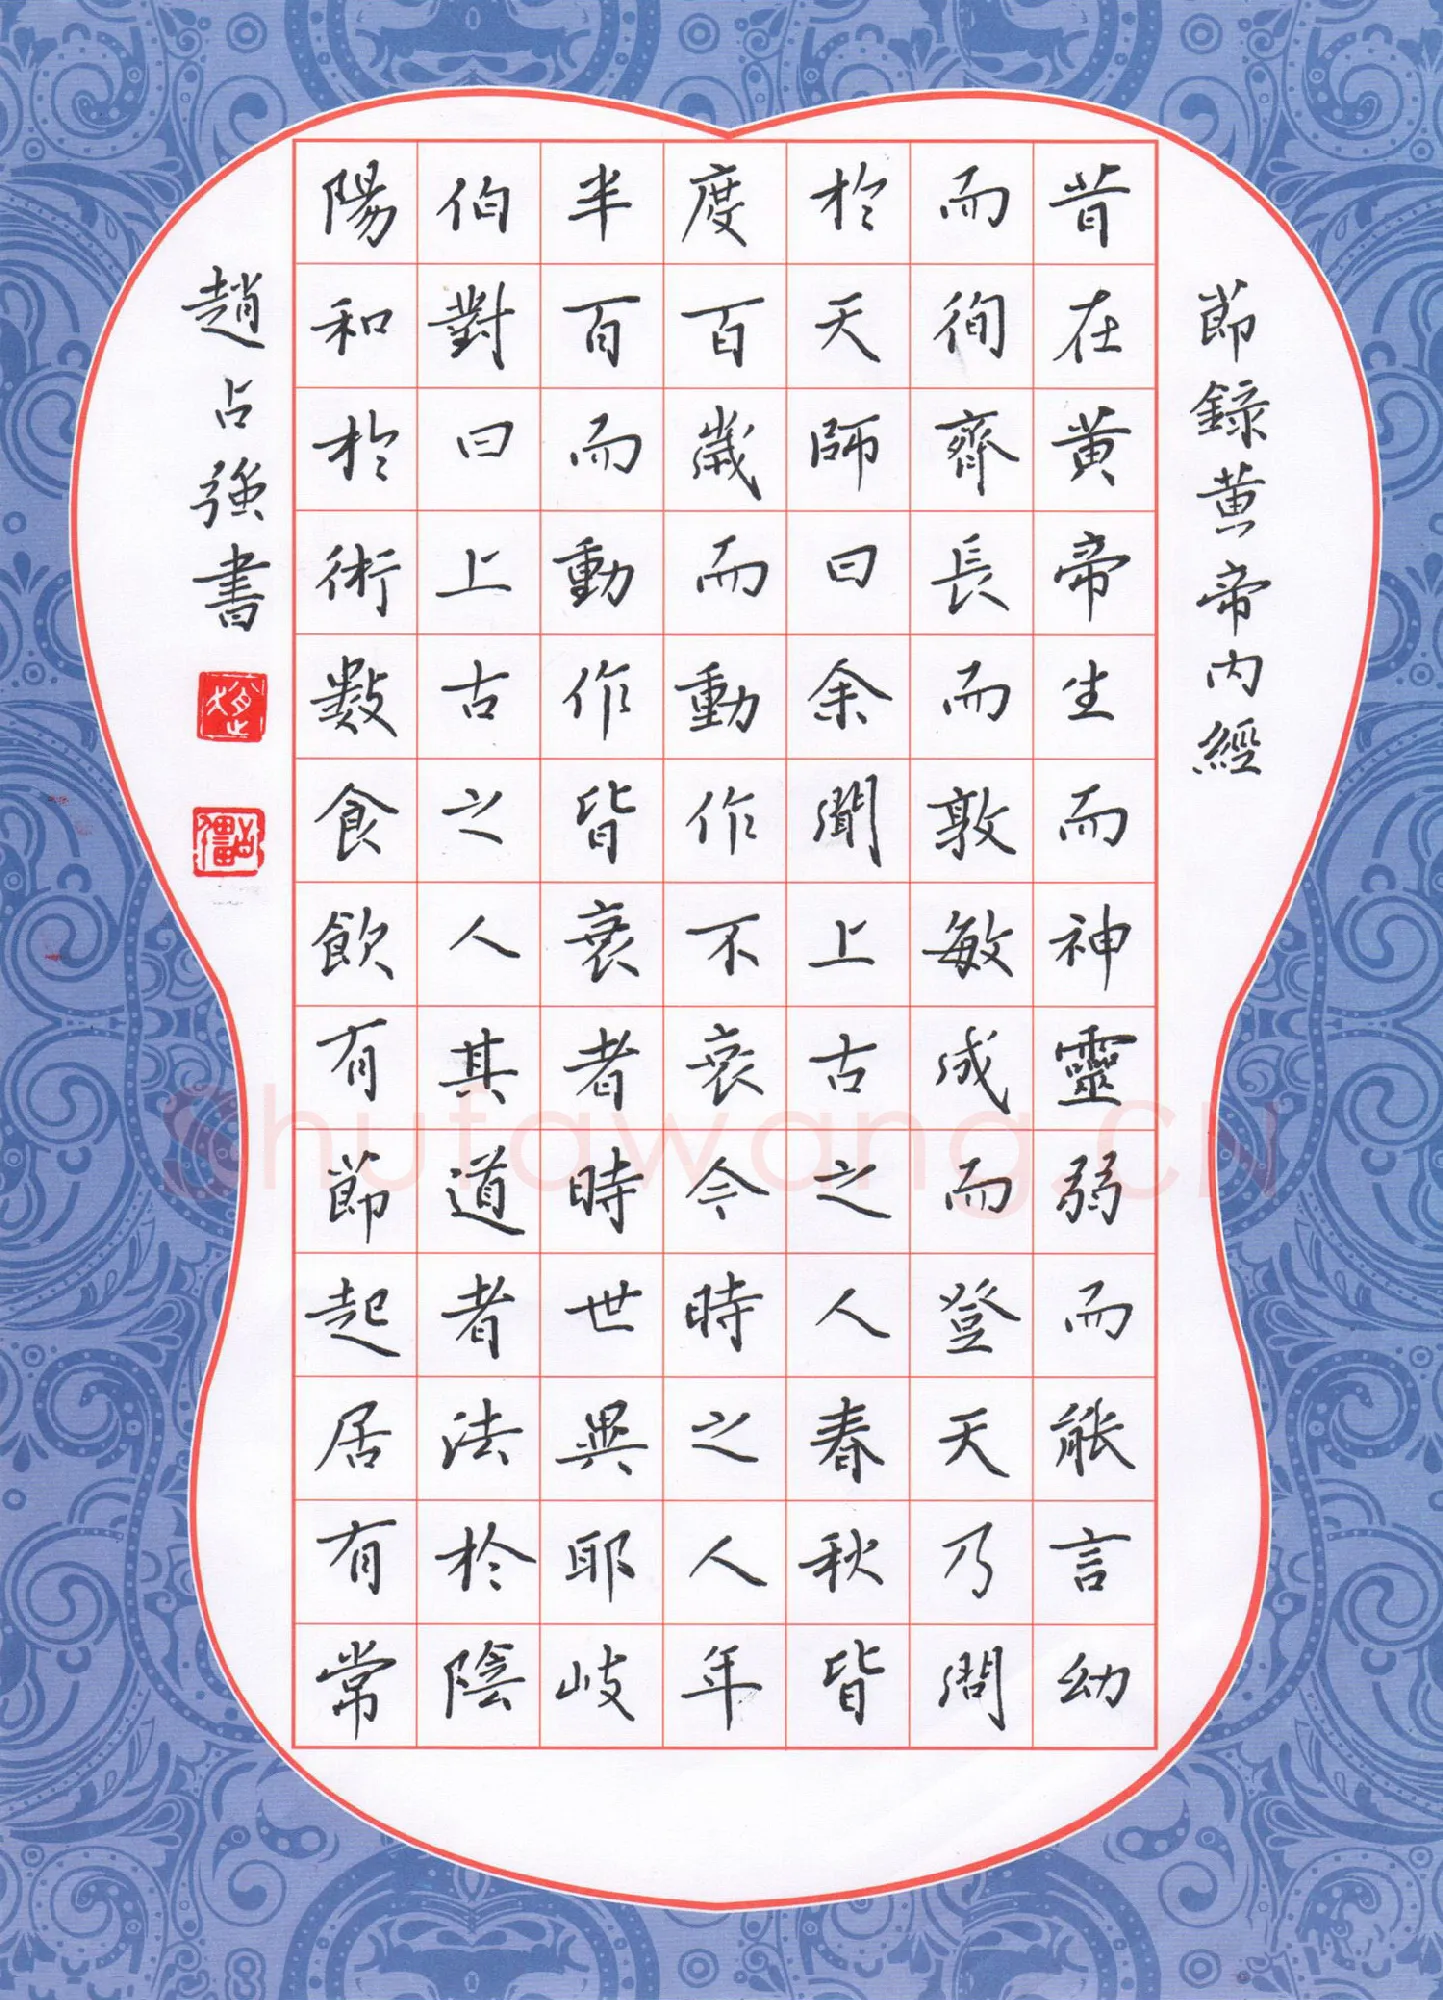 節錄黃帝内經
昔在黃帝生而神靈弱而能言幼
而徇齊長而敦敏成而登天乃問
於天師曰余聞上古之人春秋皆
度百歲而動作不衰今時之人年
半百而動作皆衰者時世異耶岐
伯對曰上古之人其道者法於陰
陽和於術數食飲有節起居有常
趙占強書
Shufawang.CN